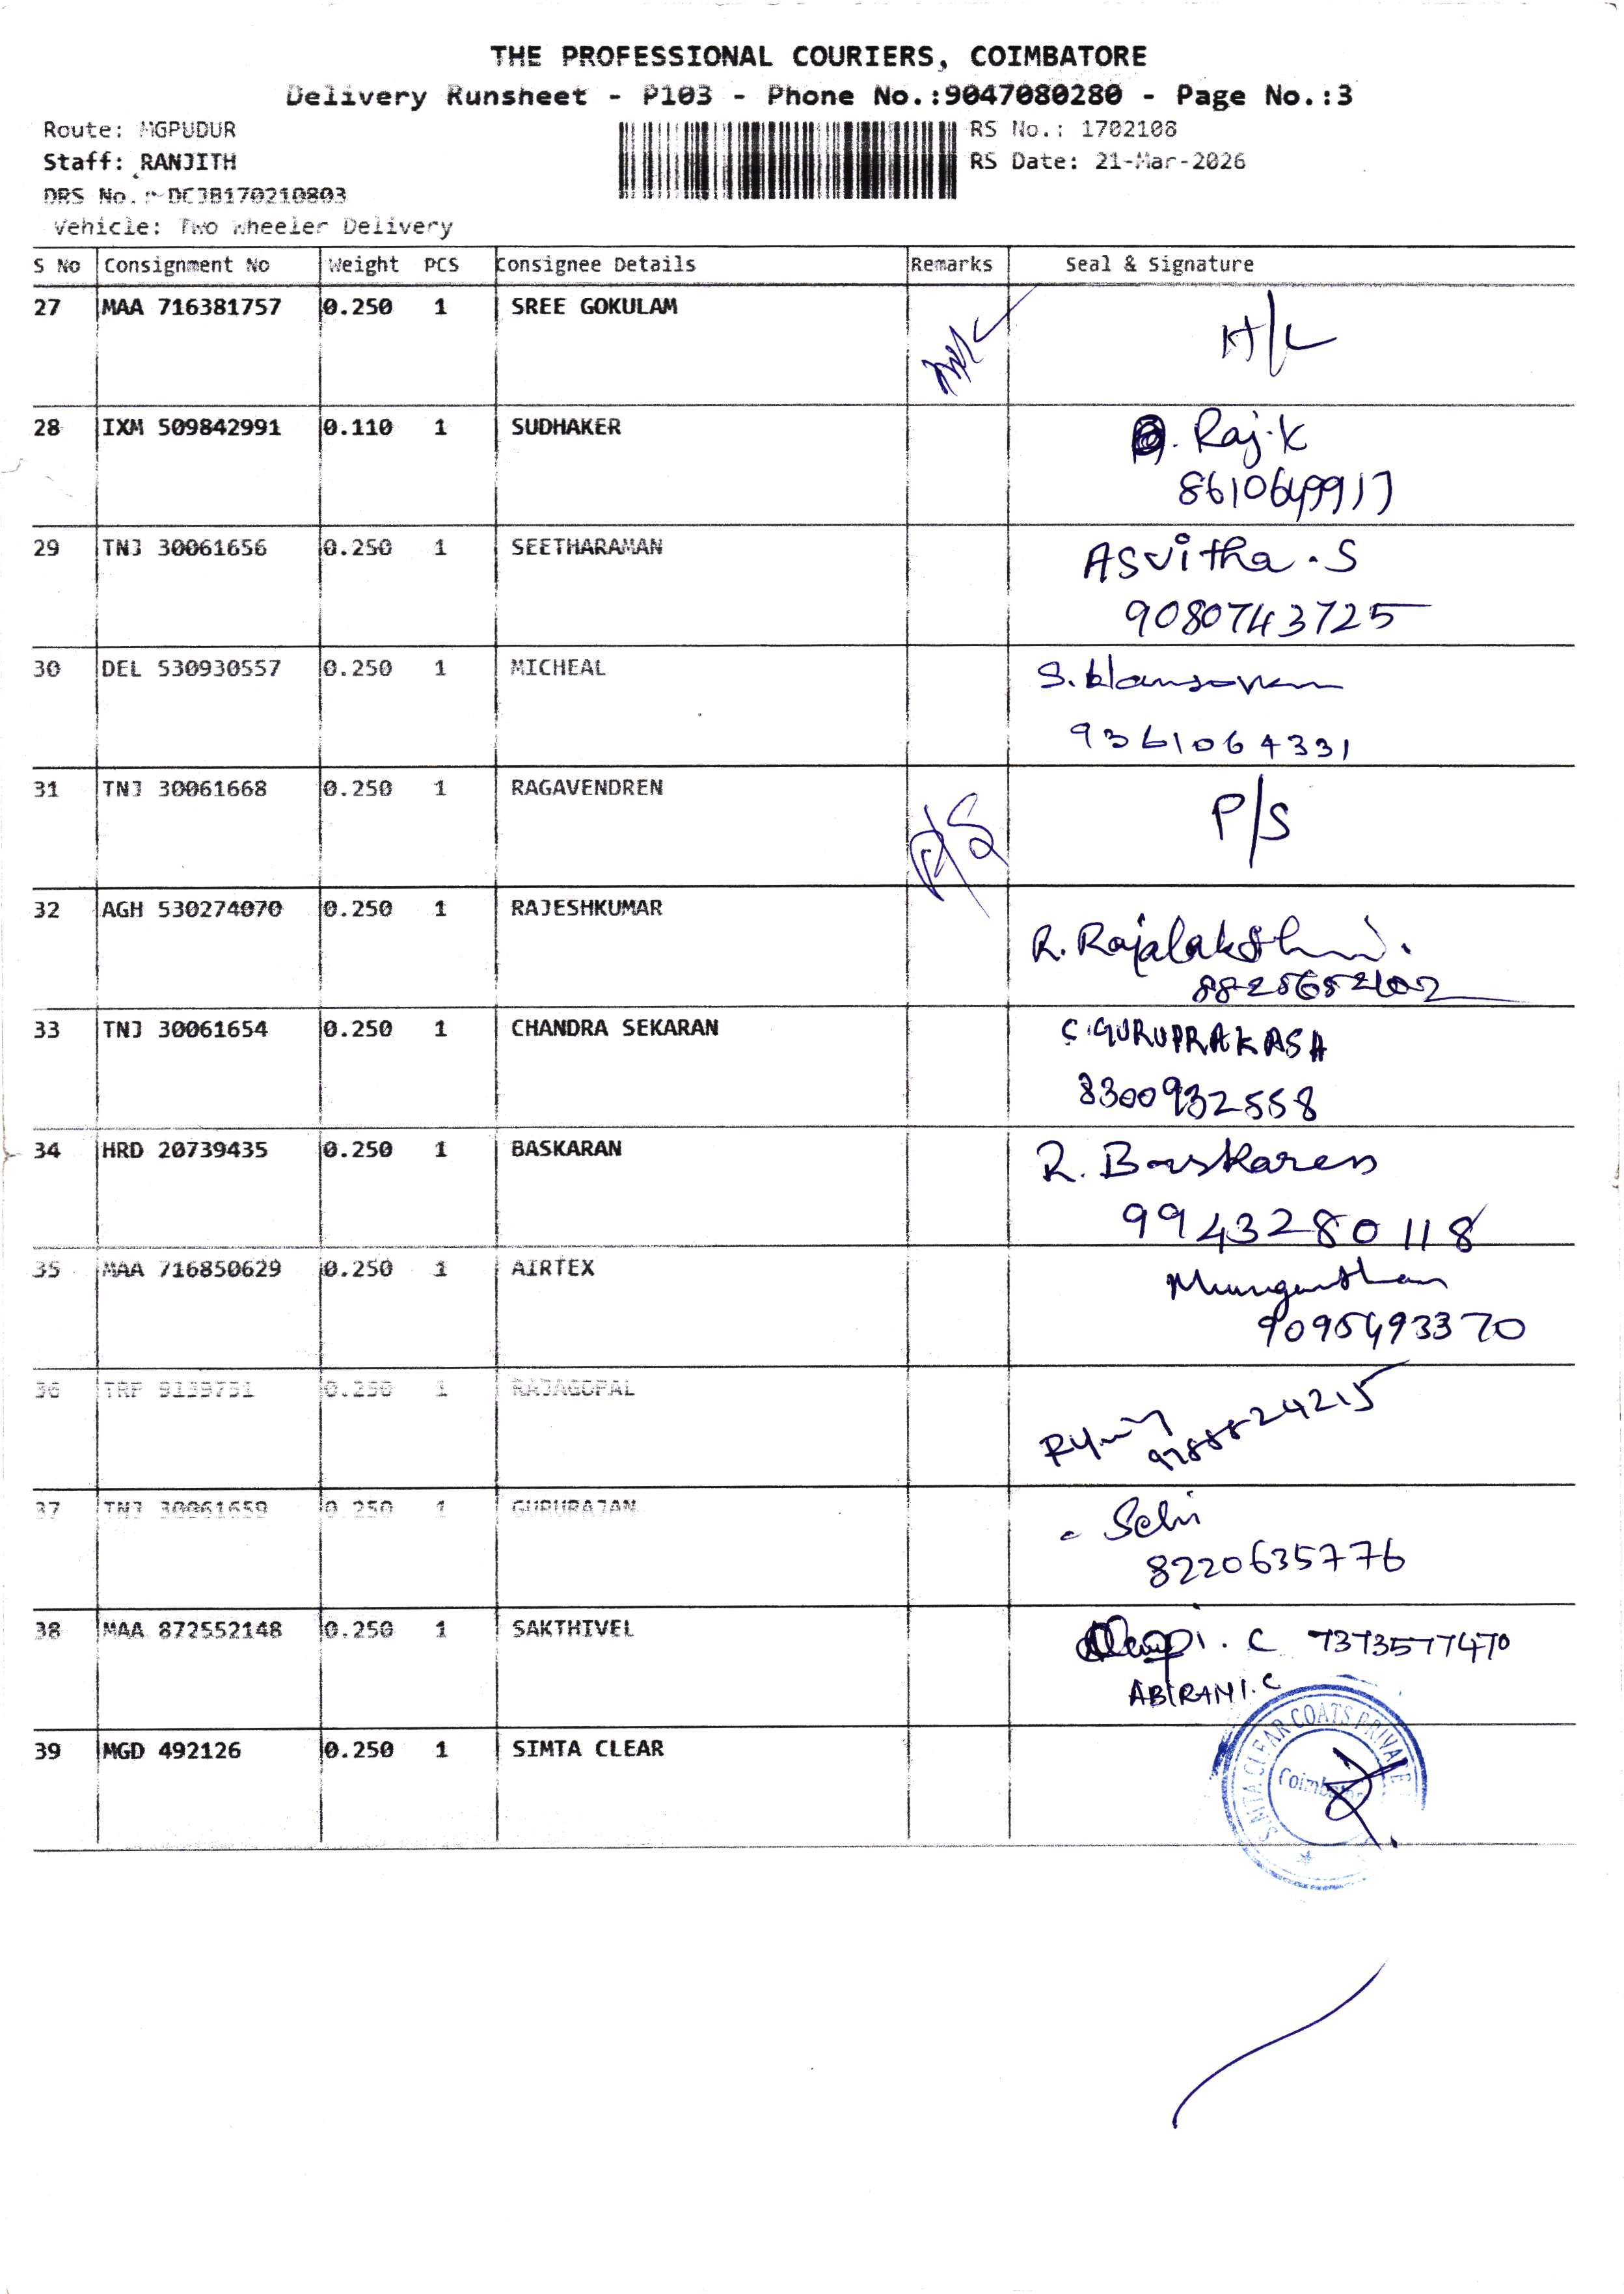 THE PROFESSIONAL COURIERS, COIMBATORE
Delivery Runsheet - P103 - Phone No.:9047080280 - Page No.:3
Route: MGPUDUR
RS No.: 1702108
Staff: RANJITH
RS Date: 21-Mar-2026
DRS No.:- DCJB170210803
Vehicle: Two Wheeler Delivery
S No Consignment No Weight PCS Consignee Details Remarks Seal & Signature
27 MAA 716381757 0.250 1 SREE GOKULAM H/L
28 IXM 509842991 0.110 1 SUDHAKER Raj.K
8610649917
29 TNJ 30061656 0.250 1 SEETHARAMAN Asvitha.S
9080743725
30 DEL 530930557 0.250 1 MICHEAL S.
9361064331
31 TNJ 30061668 0.250 1 RAGAVENDREN P/S
32 AGH 530274070 0.250 1 RAJESHKUMAR R. Rajalakshmi.
33 TNJ 30061654 0.250 1 CHANDRA SEKARAN C.GURUPRAKASH
8300932558
34 HRD 20739435 0.250 1 BASKARAN R. Baskaren
9943280118
35 MAA 716850629 0.250 1 AIRTEX
9095493370
36 TRP 9139751 0.250 1 RAJAGOPAL
37 TNJ 30061659 0.250 1 GURURAJAN Selvi
8220635776
38 MAA 872552148 0.250 1 SAKTHIVEL C 7373577470
ABIRAMI.C
39 MGD 492126 0.250 1 SIMTA CLEAR
SIMTA CLEAR COATS PRIVATE
Coimbatore